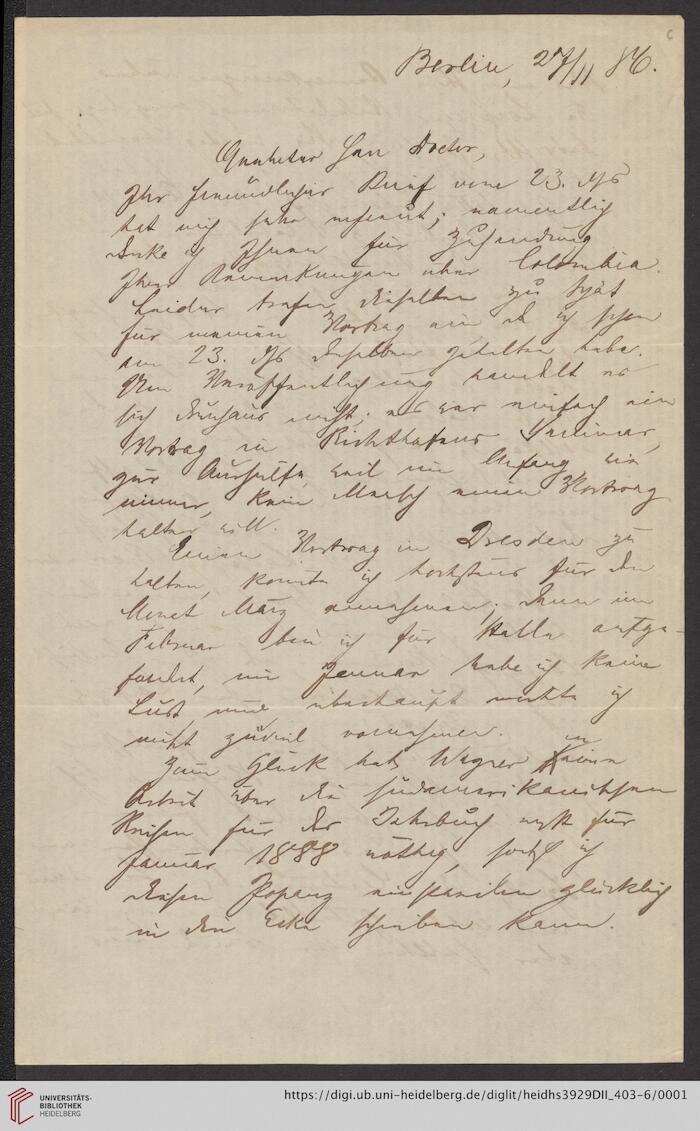 6
Berlin, 27/11 86.
Geehrter Herr Doctor,
Ihr freundlicher Brief vom 23. ds
hat mich sehr erfreut; namentlich
danke ich Ihnen für Zusendung
Ihrer Bemerkungen über Colombia.
Leider trafen dieselben zu spät
für meinen Vortrag ein da ich schon
am 23. ds denselben gehalten habe.
Um Veröffentlichung handelt es
sich durchaus nicht; es war einfach ein
Vortrag in Richthofens Seminar,
zur Aushülfe, weil im Anfang wie
immer, kein Mensch einen Vortrag
halten will.
Einen Vortrag in Dresden zu
halten, könnte ich höchstens für den
Monat März annehmen; denn im
Februar bin ich für Halle aufge-
fordert, im Januar habe ich keine
Lust, und überhaupt möchte ich
nicht zuviel vornehmen.
Zum Glück hat Wagner meine
Arbeit über die südamerikanischen
Reisen für das Jahrbuch erst für
Januar 1888 nöthig, sodaß ich
diesen Popanz einstweilen glücklich
in die Ecke schieben kann.
UNIVERSITÄTS-
BIBLIOTHEK
HEIDELBERG
https://digi.ub.uni-heidelberg.de/diglit/heidhs3929DII_403-6/0001